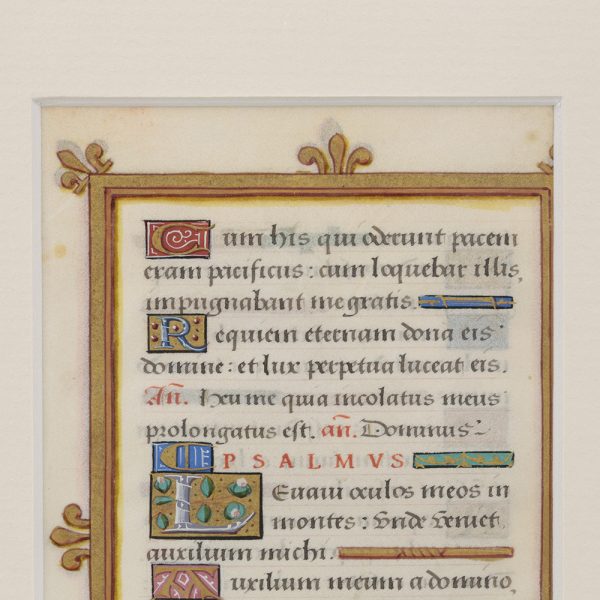 Cum his qui oderunt pacem
eram pacificus: cum loquebar illis,
impugnabant me gratis.
Requiem eternam dona eis
domine: et lux perpetua luceat eis.
Añ. Heu me quia incolatus meus
prolongatus est. añ. Dominus:
PSALMVS
Levavi oculos meos in
montes: vnde veniet
auxilium michi.
Auxilium meum a domino,